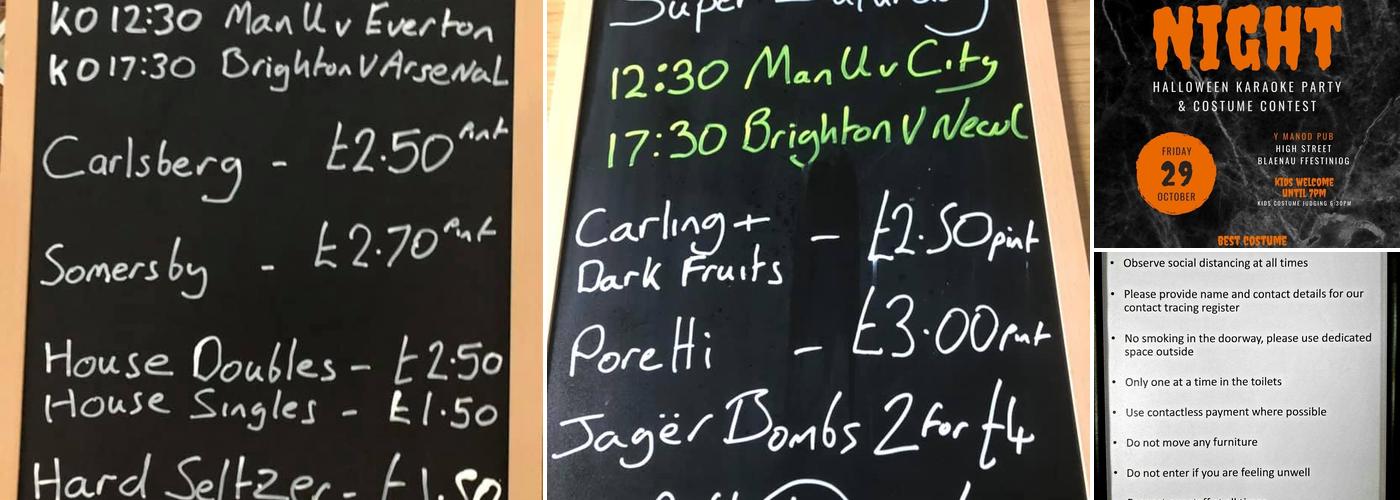 KO 12:30 Man U v Everton
KO 17:30 Brighton V Arsenal
Carlsberg - £2.50 Pint
Somersby - £2.70 Pint
House Doubles - £2.50
House Singles - £1.50
Hard Seltzer - £1.50
Super Saturday
12:30 Man U v City
17:30 Brighton V Newc
Carling +
Dark Fruits - £2.50 pint
Poretti - £3.00 Pint
Jagër Bombs 2 For £4
NIGHT
HALLOWEEN KARAOKE PARTY
& COSTUME CONTEST
FRIDAY
29
OCTOBER
Y MANOD PUB
HIGH STREET
BLAENAU FFESTINIOG
KIDS WELCOME
UNTIL 7PM
KIDS COSTUME JUDGING 6:30PM
BEST COSTUME
• Observe social distancing at all times
• Please provide name and contact details for our
contact tracing register
• No smoking in the doorway, please use dedicated
space outside
• Only one at a time in the toilets
• Use contactless payment where possible
• Do not move any furniture
• Do not enter if you are feeling unwell